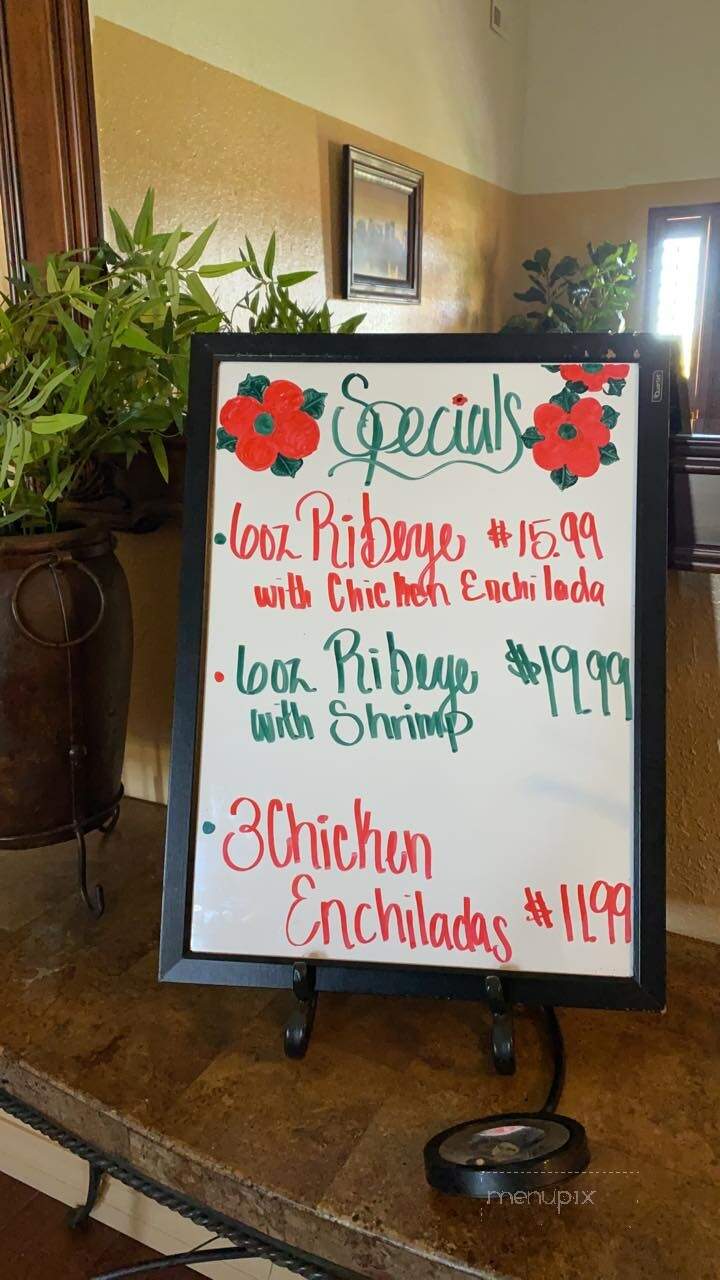 Specials
6oz Ribeye $15.99
with Chicken Enchilada
6oz Ribeye $19.99
with Shrimp
3 Chicken
Enchiladas $11.99
menupix